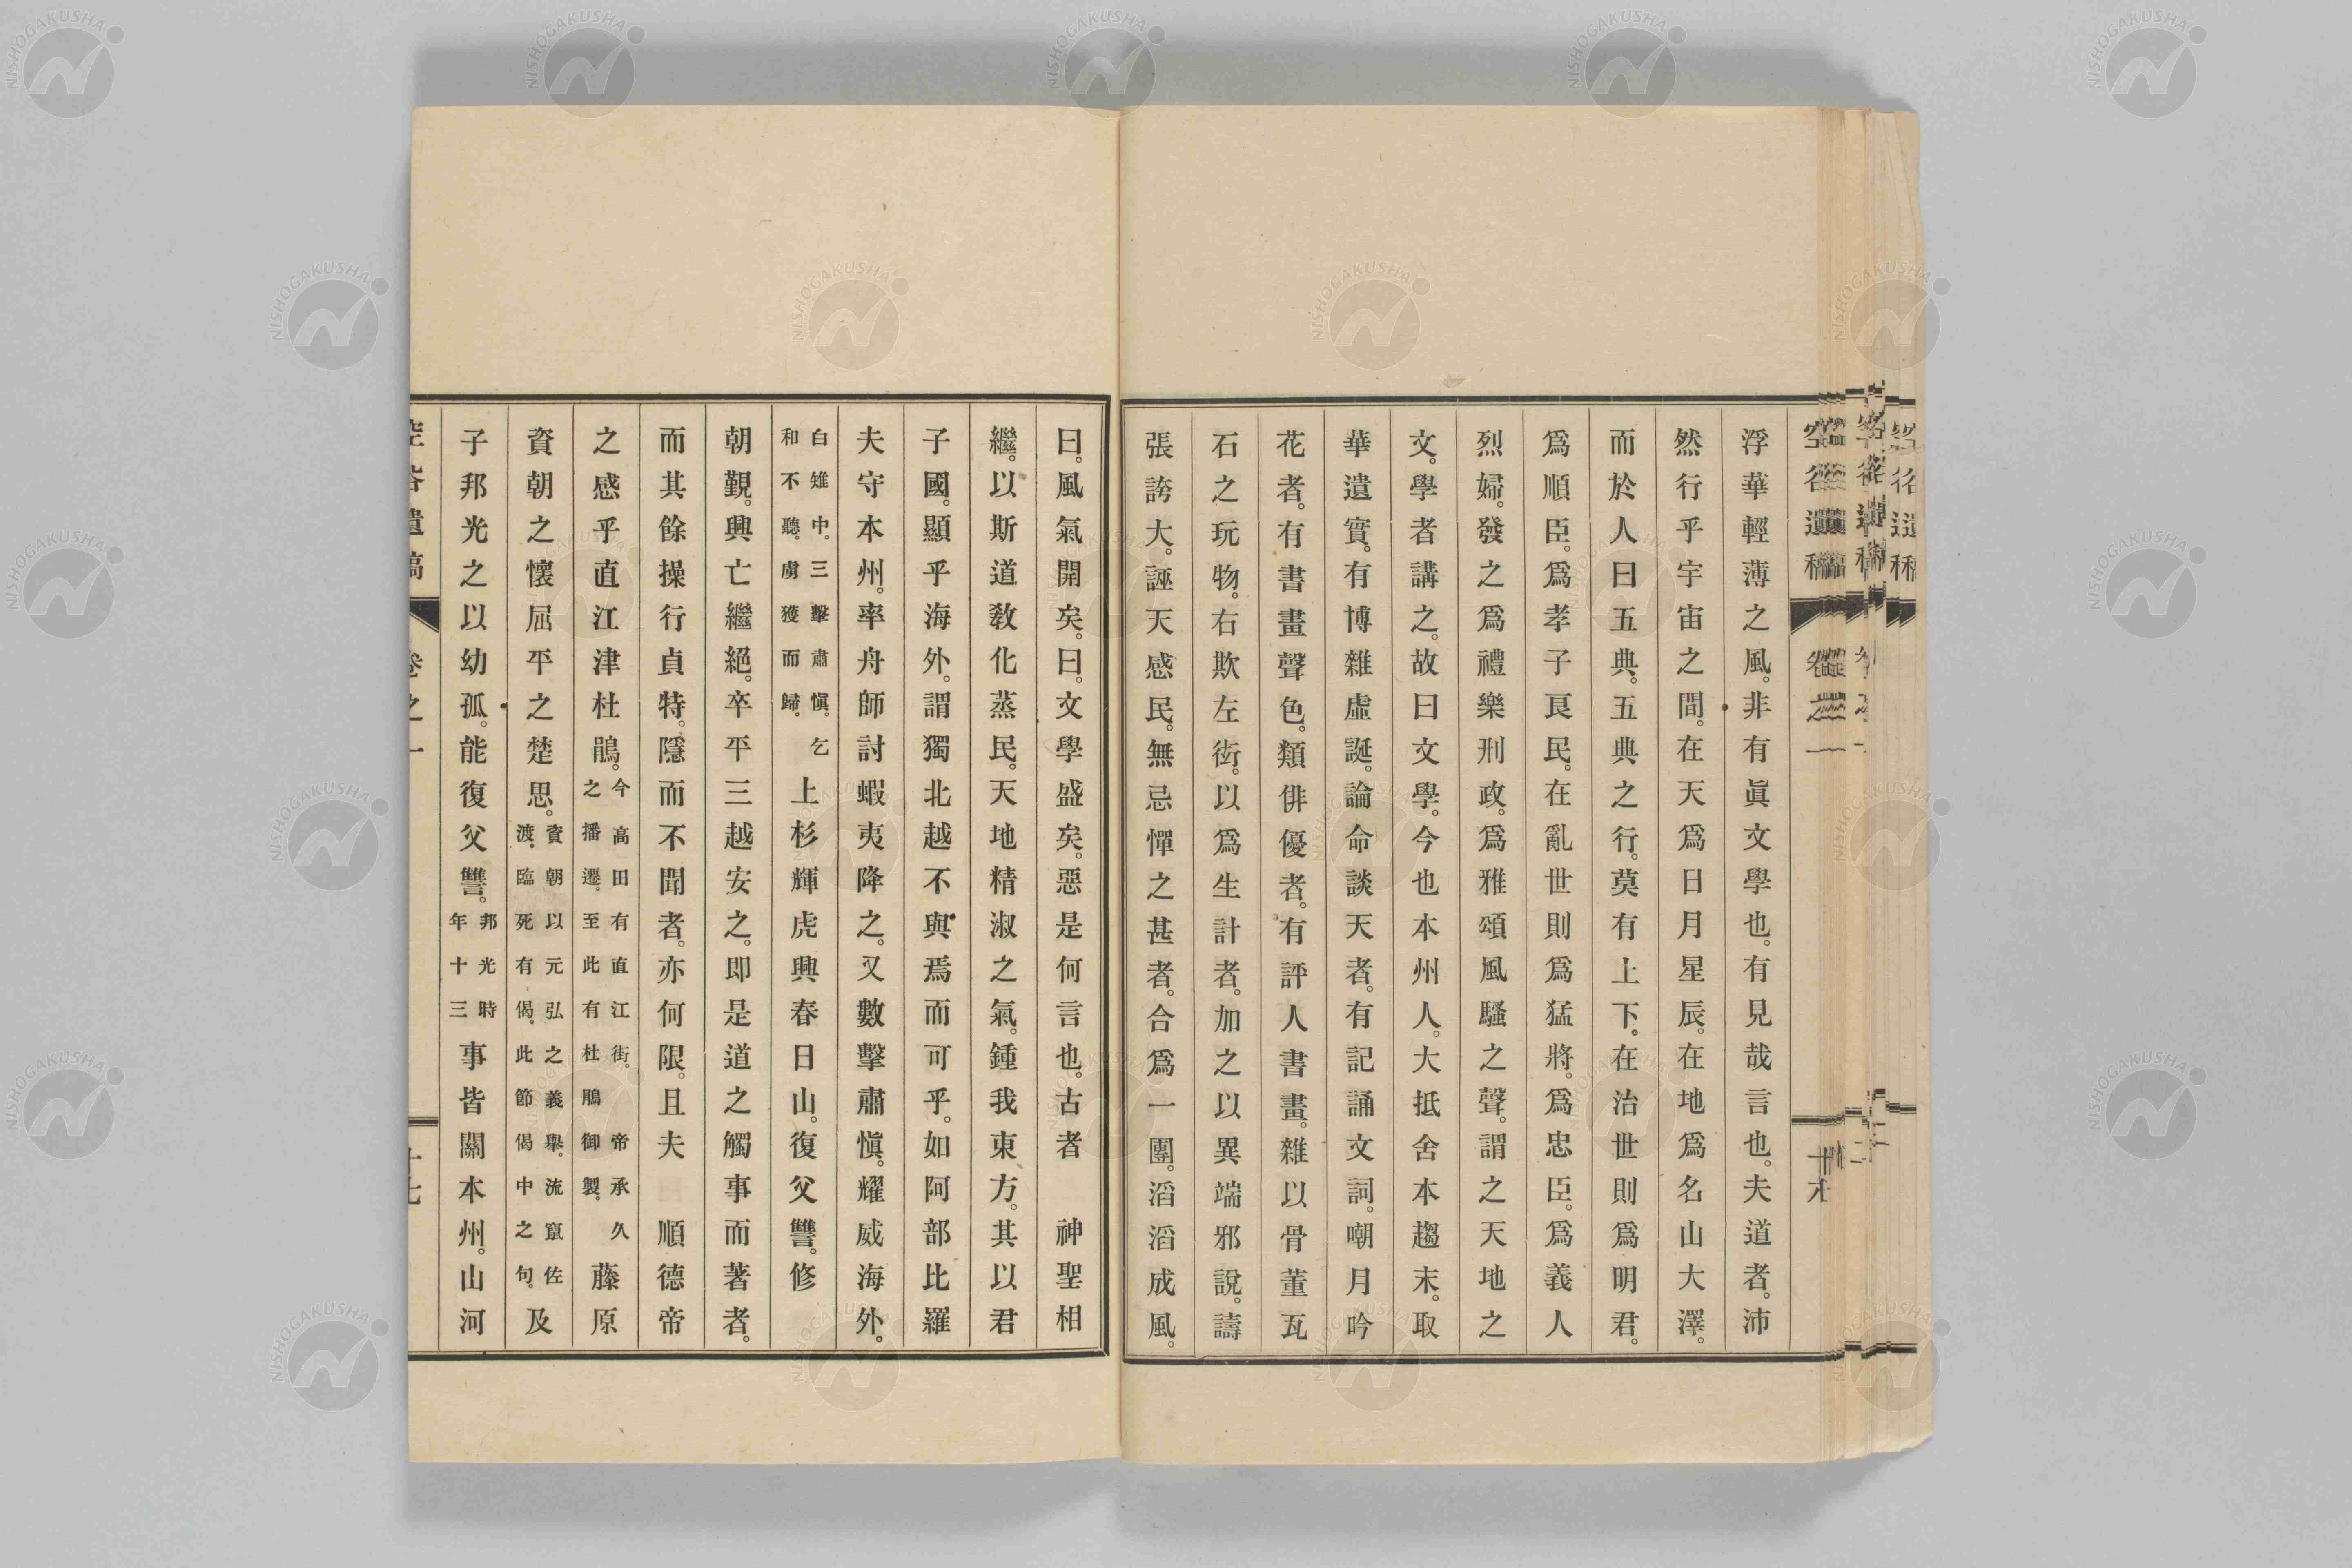 浮華輕薄之風。非有眞文學也。有見哉言也。夫道者。沛
然行乎宇宙之間。在天爲日月星辰。在地爲名山大澤。
而於人曰五典。五典之行。莫有上下。在治世則爲明君。
爲順臣。爲孝子良民。在亂世則爲猛將。爲忠臣。爲義人
烈婦。發之爲禮樂刑政。爲雅頌風騷之聲。謂之天地之
文。學者講之。故曰文學。今也本州人。大抵舍本趨末。取
華遺實。有博雜虛誕。論命談天者。有記誦文詞。嘲月吟
花者。有書畫聲色。類俳優者。有評人書畫。雜以骨董瓦
石之玩物。右欺左衒。以爲生計者。加之以異端邪說。譸
張誇大。誣天惑民。無忌憚之甚者。合爲一團。滔滔成風。
曰。風氣開矣。曰。文學盛矣。惡是何言也。古者　神聖相
繼。以斯道敎化蒸民。天地精淑之氣。鍾我東方。其以君
子國。顯乎海外。謂獨北越不與焉而可乎。如阿部比羅
夫守本州。率舟師討蝦夷降之。又數擊肅愼。耀威海外。
白雉中。三擊肅愼。乞
和不聽。虜獲而歸。
上杉輝虎興春日山。復父讐。修
朝覲。興亡繼絕。卒平三越安之。卽是道之觸事而著者。
而其餘操行貞特。隱而不聞者。亦何限。且夫　順德帝
之感乎直江津杜鵑。
今高田有直江街。帝承久
之播遷。至此有杜鵑御製。
藤原
資朝之懷屈平之楚思。
資朝以元弘之義舉。流竄佐
渡。臨死有偈。此節偈中之句。
及
子邦光之以幼孤。能復父讐。
邦光時
年十三
事皆關本州。山河
空谷遺稿
卷之一
十七
空谷遺稿
卷之一
NISHOGAKUSHA